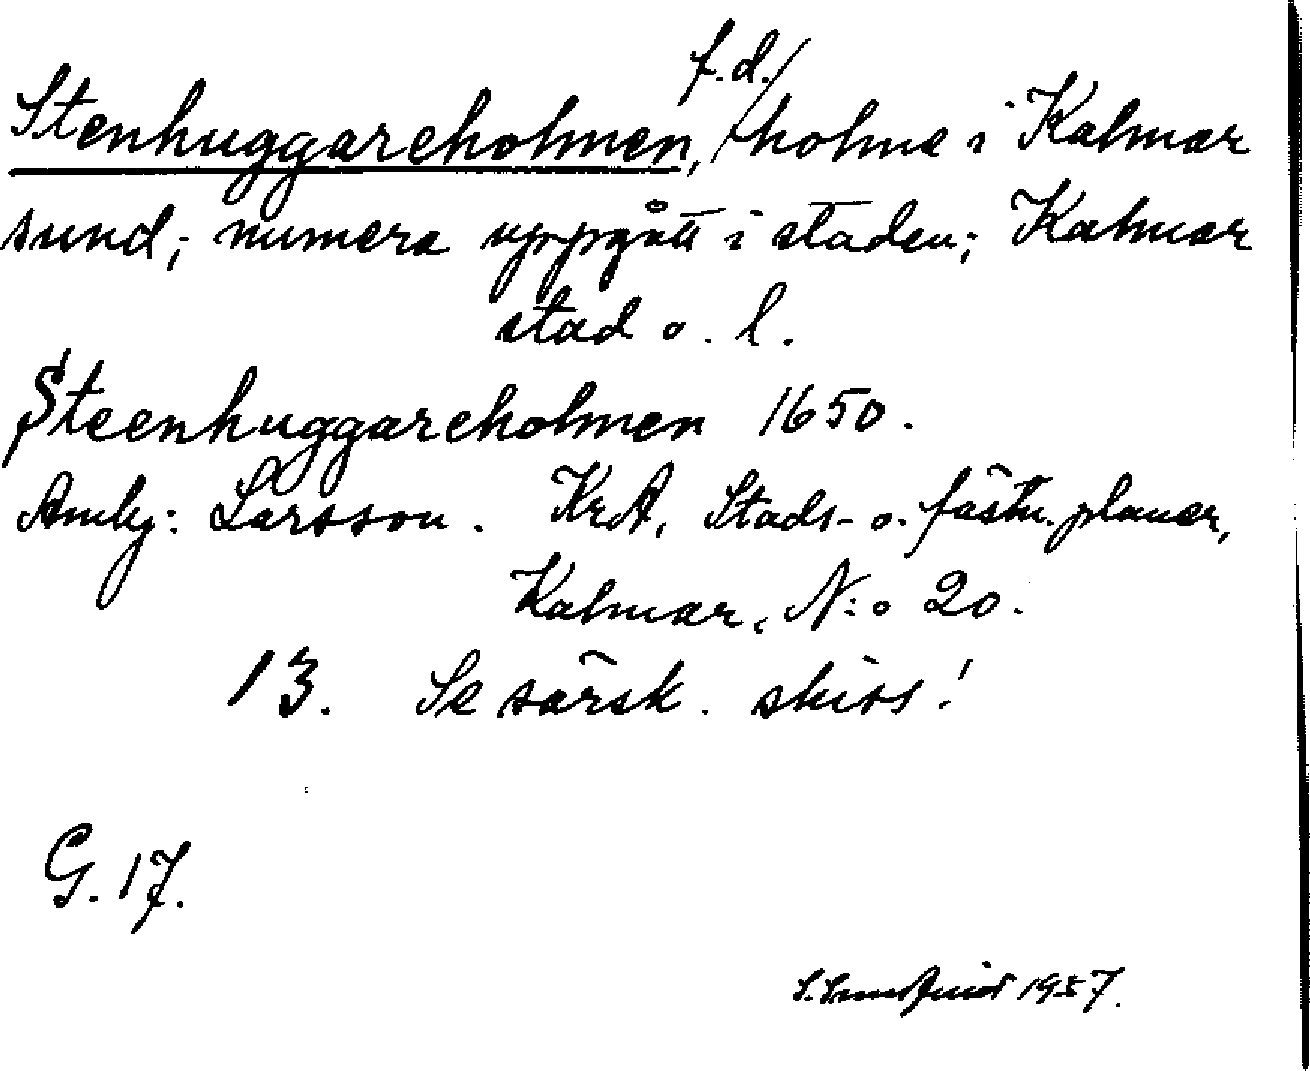 Stenhuggareholmen, f.d. holme i Kalmar
sund; numera uppgått i staden; Kalmar
stad o. l.
Steenhuggareholmen 1650.
Amby: Larsson. KrA, Stads- o. fästn. planer,
Kalmar, N:o 20.
13. Se särsk. skiss!
G. 17.
1957.